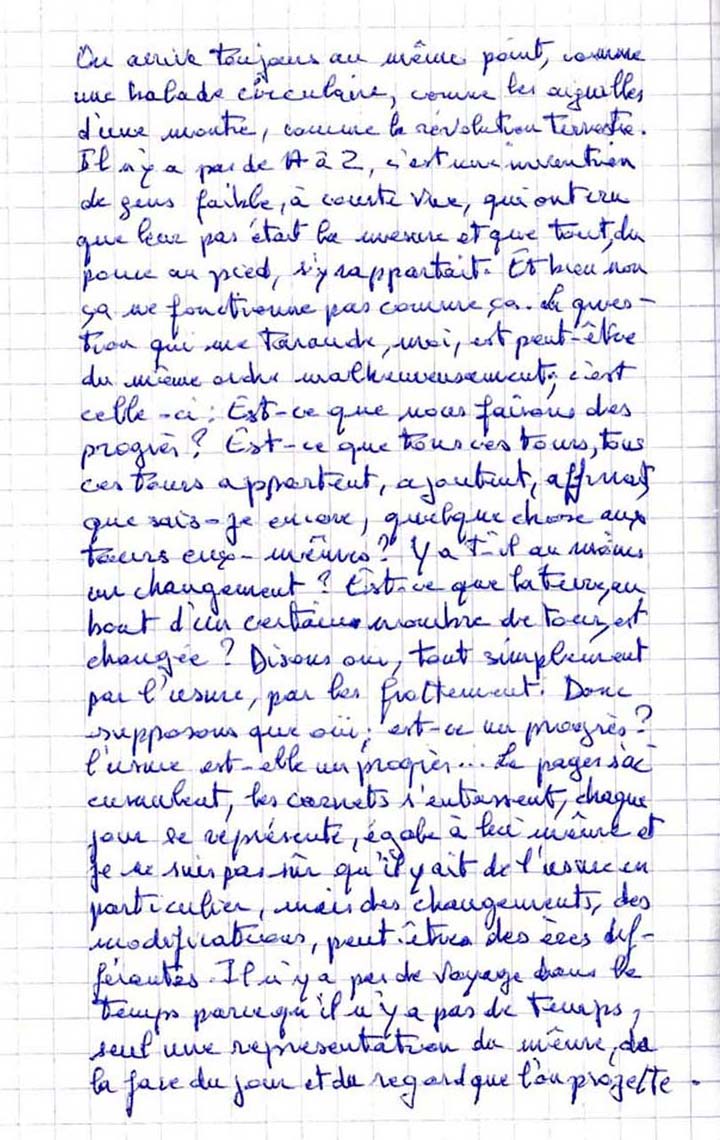 On arrive toujours au même point, comme
une balade circulaire, comme les aiguilles
d'une montre, comme la révolution terrestre.
Il n'y a pas de A à Z, c'est une invention
de gens faible, à courte vue, qui ont cru
que leur pas était la mesure et que tout, du
pouce au pied, s'y rapportait. Et bien non
ça ne fonctionne pas comme ça. La ques-
tion qui me taraude, moi, est peut-être
du même ordre malheureusement, c'est
celle-ci : Est-ce que nous faisons des
progrès ? Est-ce que tous ces tours, tous
ces tours apportent, ajoutent,
que sais-je encore, quelque chose aux
tours eux-mêmes ? Y a t-il au moins
un changement ? Est-ce que la terre, au
bout d'un certain nombre de tour, est
changée ? Disons oui, tout simplement
par l'usure, par les frottement. Donc
supposons que oui ; est-ce un progrès ?
l'usure est-elle un progrès... La pages s'ac
cumulent, les carnets s'entassent, chaque
jour se représente, égale à lui même et
je ne suis pas sûr qu'il y ait de l'usure en
particulier, mais des changements, des
modifications, peut-être des ères dif-
férentes. Il n'y a pas de voyage dans le
temps parce qu'il n'y a pas de temps,
seul une représentation du même, de
la face du jour et du regard que l'on projette.